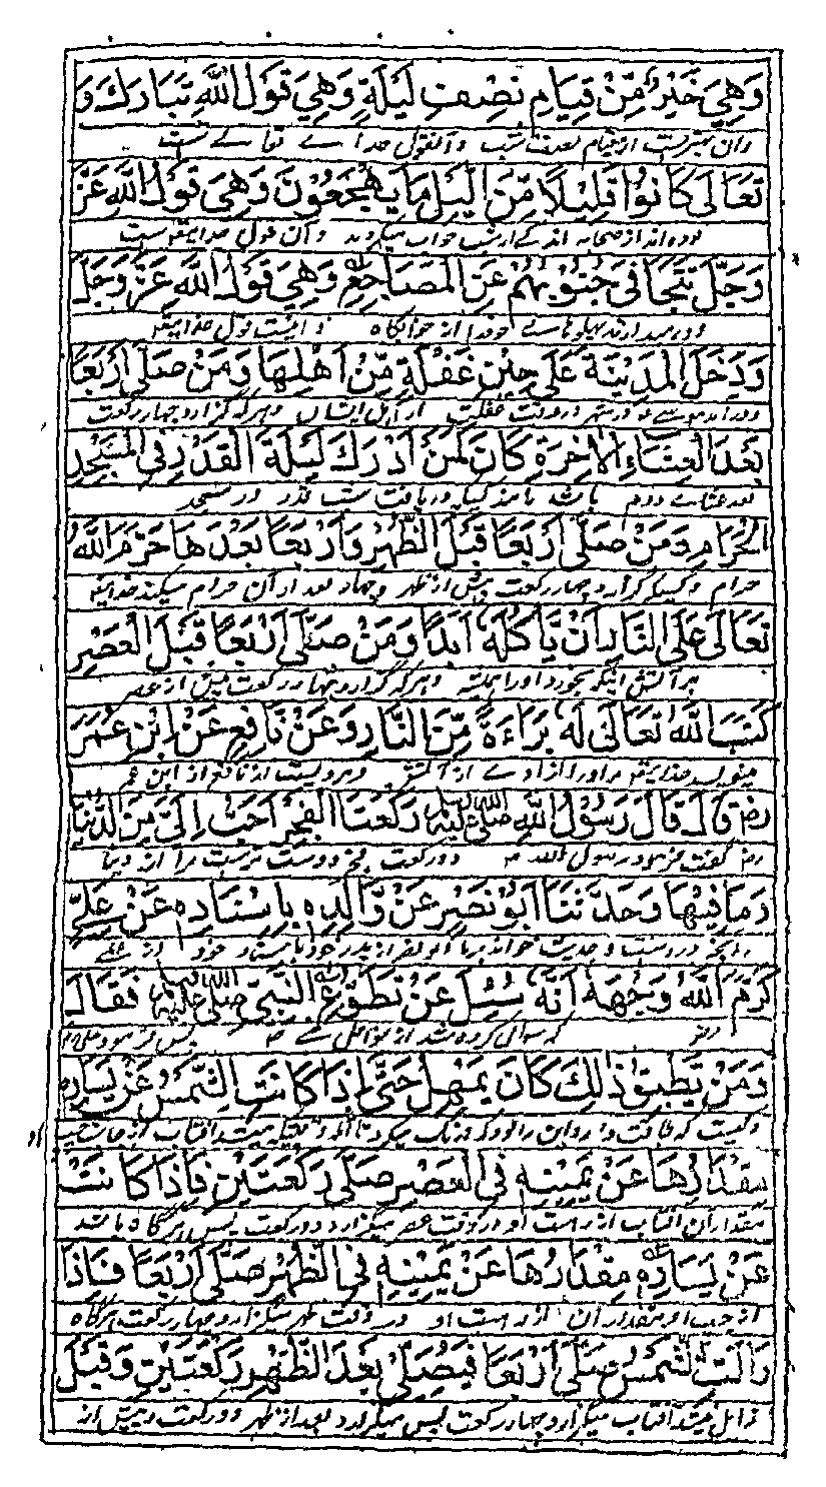 وَهِيَ خَيْرٌ مِّنْ قِيَامِ نِصْفِ لَيْلَةٍ وَهِيَ قَوْلُ اللّٰهِ تَبَارَكَ وَ
وآن بهترست از قیام نصف شب وآن قول خدا
تَعَالَى كَانُوْا قَلِيْلًا مِّنَ الَّيْلِ مَا يَهْجَعُوْنَ وَهِيَ قَوْلُ اللّٰهِ عَزَّ
بوده اند از صحابه اندکے از شب خواب میکردند وآن قول خدایتعالی ست
وَجَلَّ تَتَجَافٰى جُنُوْبُهُمْ عَنِ الْمَضَاجِعِ وَهِيَ قَوْلُ اللّٰهِ عَزَّ وَجَلَّ
پهلوهاے خود را از خوابگاه و اینست قول خدایتعالی
وَدَخَلَ الْمَدِيْنَةَ عَلٰى حِيْنِ غَفْلَةٍ مِّنْ اَهْلِهَا وَمَنْ صَلّٰى اَرْبَعًا
در شهر در وقت غفلت از اهل ایشان وهرکه گزارد چهار رکعت
بَعْدَ الْعِشَاءِ الْاٰخِرَةِ كَانَ كَمَنْ اَدْرَكَ لَيْلَةَ الْقَدْرِ فِي الْمَسْجِدِ
بعد عشاے دوم باشد مانند کسیکه دریافت شب قدر در مسجد
الْحَرَامِ وَمَنْ صَلّٰى اَرْبَعًا قَبْلَ الظُّهْرِ وَاَرْبَعًا بَعْدَهَا حَرَّمَ اللّٰهُ
حرام وکسیکه گزارد چهار رکعت پیش از ظهر وچهار بعد از آن حرام میکند خدایتعالی
تَعَالٰى عَلَى النَّارِ اَنْ يَّاْكُلَهٗ اَبَدًا وَمَنْ صَلّٰى اَرْبَعًا قَبْلَ الْعَصْرِ
بر آتش اینکه بخورد اورا همیشه وهرکه گزارد چهار رکعت پیش از عصر
كَتَبَ اللّٰهُ تَعَالٰى لَهٗ بَرَاءَةً مِّنَ النَّارِ وَعَنْ نَافِعٍ عَنْ ابْنِ عُمَرَ
مینویسد خدایتعالی مر اورا آزادے از آتش ومرویست از نافع از ابن عمر
رض قَالَ قَالَ رَسُوْلُ اللّٰهِ صلى الله عليه رَكْعَتَا الْفَجْرِ اَحَبُّ اِلَيَّ مِنَ الدُّنْيَا
رض گفت فرمود رسول الله ص دو رکعت فجر دوست ترست مرا از دنیا
وَمَا فِيْهَا وَحَدَّثَنَا اَبُوْ نَصْرٍ عَنْ وَّالِدِهٖ بِاِسْنَادِهٖ عَنْ عَلِيٍّ
وآنچه دروست وحدیث خواند برما ابو نصر از پدر خود باسناد خود از علے
كَرَّمَ اللّٰهُ وَجْهَهٗ اَنَّهٗ سُئِلَ عَنْ تَطَوُّعِ النَّبِيِّ صلى الله عليه فَقَالَ
که سوال کرده شد از نوافل نبے ص پس فرمود
وَمَنْ يُّطِيْقُ ذٰلِكَ كَانَ يُمْهِلُ حَتّٰى اِذَا كَانَتِ الشَّمْسُ عَنْ يَسَارِهٖ
وکیست که طاقت دارد این را بود که درنگ میکرد تا آنکه وقتیکه میشد آفتاب از جانب چپ
مِقْدَارُهَا عَنْ يَمِيْنِهٖ فِي الْعَصْرِ صَلّٰى رَكْعَتَيْنِ فَاِذَا كَانَتْ
مقدار آن آفتاب از راست او در وقت عصر میگزارد دو رکعت پس هرگاه باشد
عَنْ يَسَارِهٖ مِقْدَارُهَا عَنْ يَّمِيْنِهٖ فِي الظُّهْرِ صَلّٰى اَرْبَعًا فَاِذَا
از چپ او مقدار آن از راست او در وقت ظهر میگزارد چهار رکعت پس هرگاه
زَالَتِ الشَّمْسُ صَلّٰى اَرْبَعًا فَيُصَلِّيْ بَعْدَ الظُّهْرِ رَكْعَتَيْنِ وَقَبْلَ
زائل میشد آفتاب میگزارد چهار رکعت پس میگزارد بعد از ظهر دو رکعت و پیش از